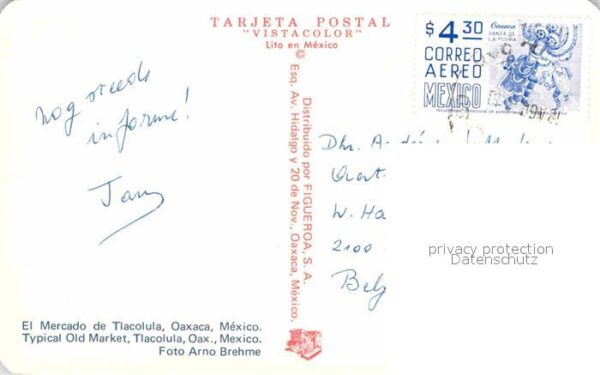 TARJETA POSTAL
"VISTACOLOR"
Lito en México
©
Distribuido por FIGUEROA, S. A.
Esq. Av. Hidalgo y 20 de Nov., Oaxaca, México.
$4.30
Oaxaca
DANZA DE
LA PLUMA
CORREO
AEREO
MEXICO
nog steeds
in forme!
Dhr.
W. Ha
2100
Belg
privacy protection
Datenschutz
El Mercado de Tlacolula, Oaxaca, México.
Typical Old Market, Tlacolula, Oax., Mexico.
Foto Arno Brehme